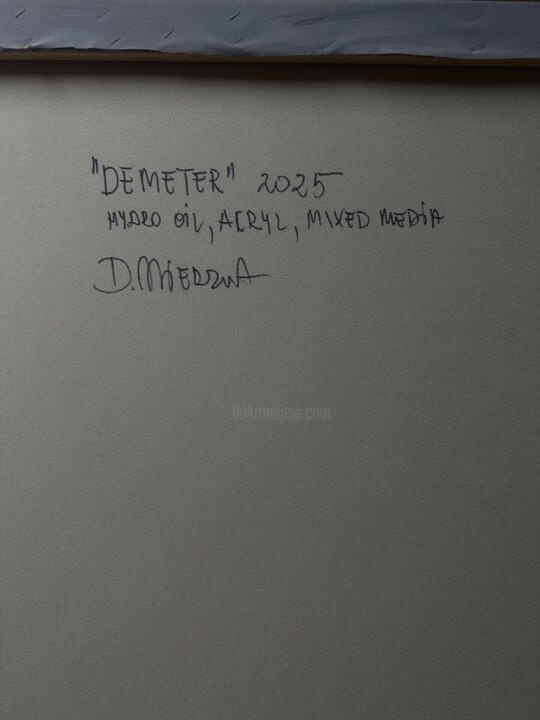 "DEMETER" 2025
HYDRO OIL, ACRYL, MIXED MEDIA
D.
©Artmajeur.com